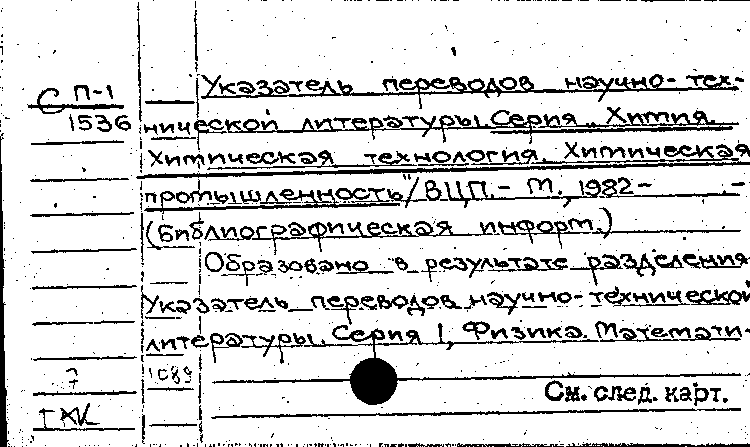 Указатель переводов научно-тех-
С П-1
1536
нической литературы. Серия „Химия.
Химическая технология. Химическая
промышленность"/ВЦП. - М., 1982 - -
(Библиографическая информ.)
Образовано в результате разделения
Указатель переводов научно-технической
литературы. Серия 1, Физика. Математи-
7 1089
См. след. карт.